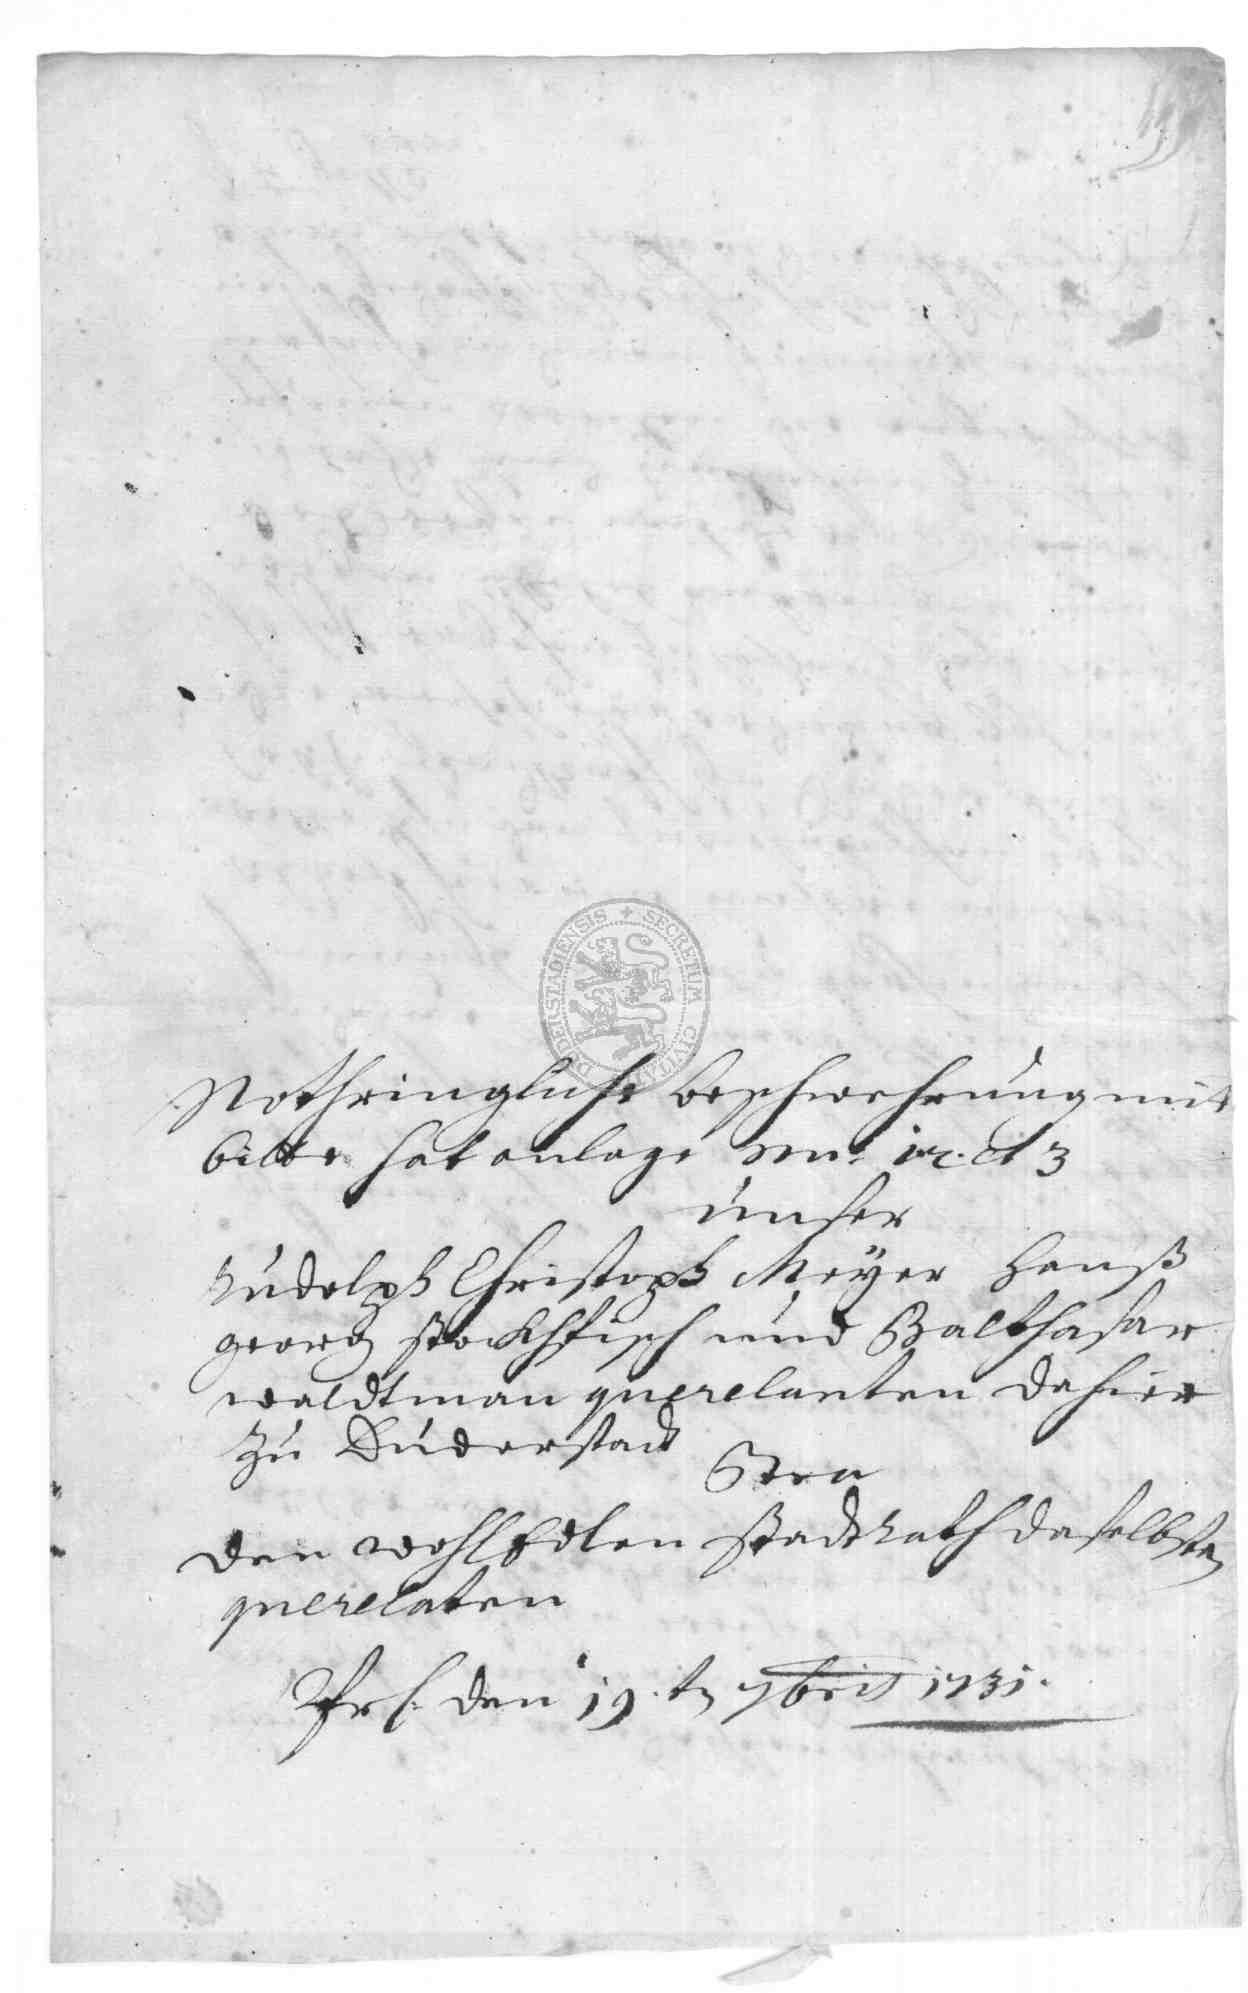 DUDERSTADIENSIS + SECRETUM CIVITATIS
Nothringliche beschwehrung mit
bitte hat anlage Nr. 1. 2. et 3
unser
Rudolph Christoph Meyer Hanß
georg stockfisch und Balthasar
waldtman querelanten dahier
Zu Duderstadt
den wohlEdlen Stadtrath daselbsten
querelaten
Prs. den 19. t. 7bris 1731.